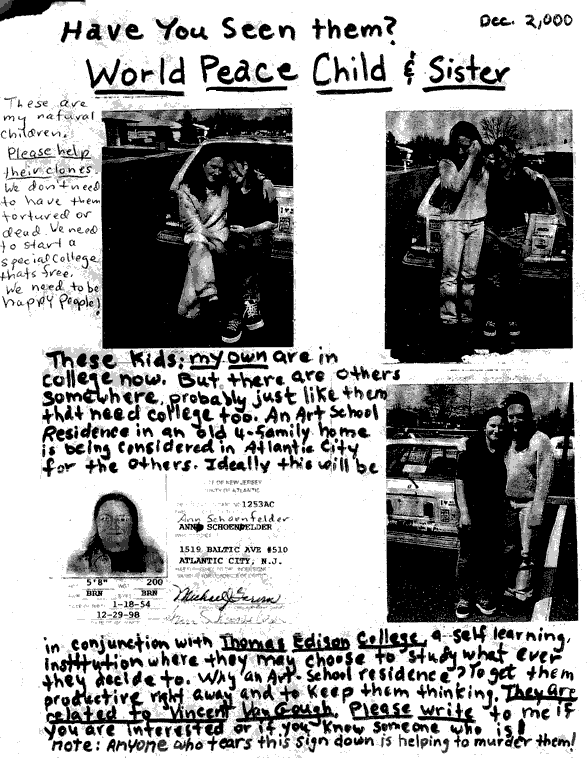 Have You Seen them?
Dec. 2,000
World Peace Child & Sister
These are
my natural
children.
Please help
their clones.
We don't need
to have them
tortured or
dead. We need
to start a
special College
thats free.
We need to be
happy People!
These Kids; my own are in
college now. But there are others
somewhere, probably just like them
that need college too. An Art School
Residence in an old 4-family home
is being considered in Atlantic City
for the others. Ideally this will be
OF NEW JERSEY
OF ATLANTIC
1253AC
Ann Schoenfelder
ANN SCHOENFELDER
1519 BALTIC AVE #510
ATLANTIC CITY, N.J.
5'8" 200
BRN BRN
1-18-54
12-29-98
in conjunction with Thomas Edison College, a self learning,
institution where they may choose to study what ever
they decide to. Why an Art-School residence? To get them
productive right away and to keep them thinking. They Are
related to Vincent Van Gough. Please write to me if
you are interested or if you know someone who is!
note: Anyone who tears this sign down is helping to murder them!